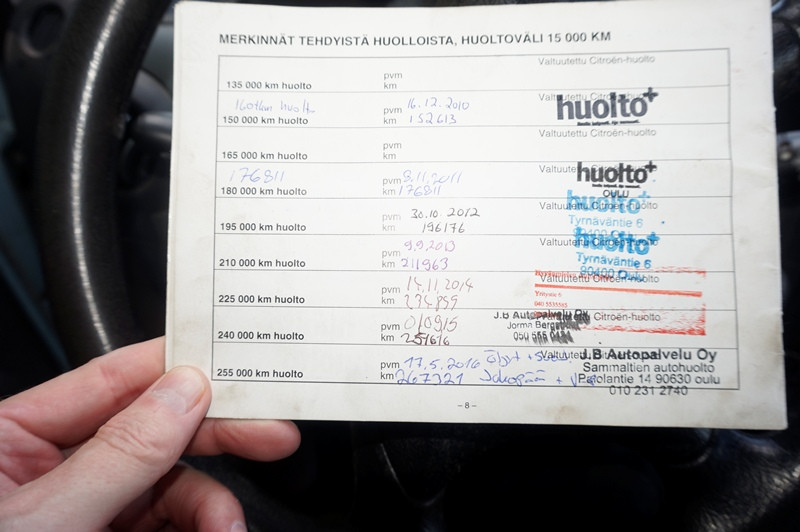 MERKINNÄT TEHDYISTÄ HUOLLOISTA, HUOLTOVÄLI 15 000 KM
135 000 km huolto pvm km Valtuutettu Citroën-huolto
150 000 km huolto pvm 16.12.2010 km 152613 Valtuutettu Citroën-huolto huolto+
165 000 km huolto pvm km Valtuutettu Citroën-huolto
176811
180 000 km huolto pvm 8.11.2011 km 176811 Valtuutettu Citroën-huolto huolto+ OULU
195 000 km huolto pvm 30.10.2012 km 196176 Valtuutettu Citroën-huolto huolto+ Tyrnäväntie 6
210 000 km huolto pvm 9.9.2013 km 211963 Valtuutettu Citroën-huolto huolto+ Tyrnäväntie 6 90400 Oulu
225 000 km huolto pvm 14.11.2014 km 234899 Valtuutettu Citroën-huolto
240 000 km huolto pvm km Citroën-huolto J.B Autopalvelu Oy Jorma
255 000 km huolto pvm 17.5.2016 km 267321 J.B Autopalvelu Oy
Sammaltien autohuolto
Paolantie 14 90630 oulu
010 231 2740
- 8 -